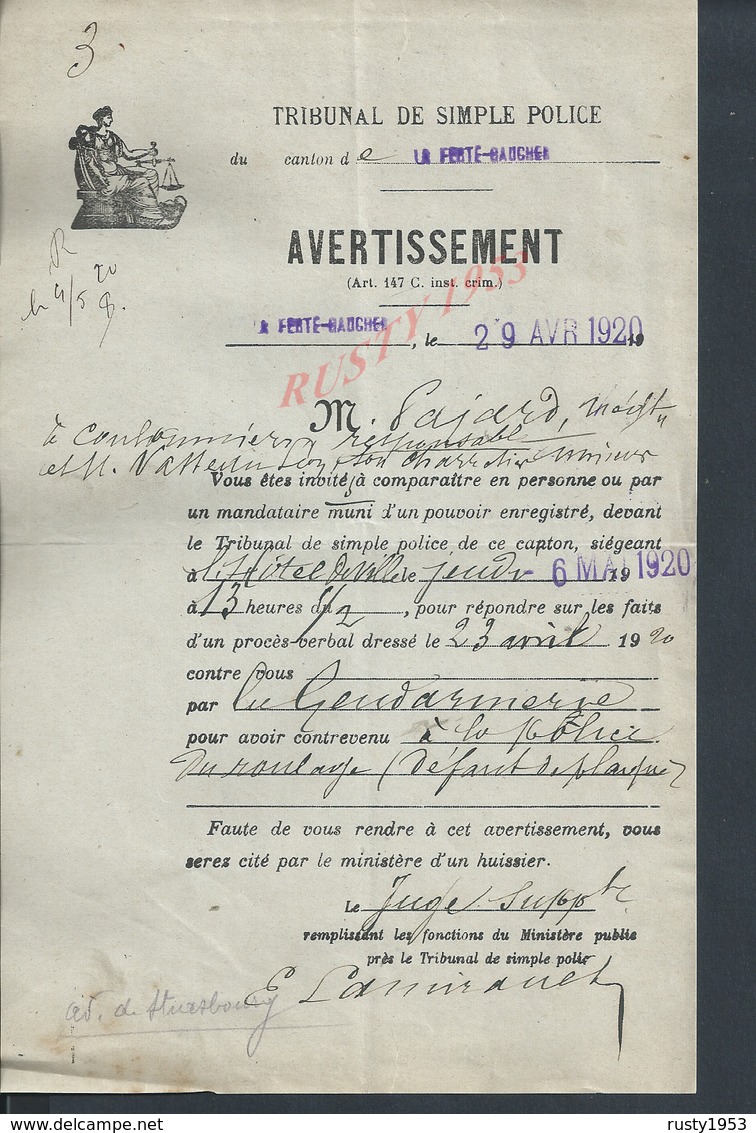 3
TRIBUNAL DE SIMPLE POLICE
du canton de LA FERTÉ-GAUCHER
AVERTISSEMENT
(Art. 147 C. inst. crim.)
LA FERTÉ-GAUCHER, le 29 AVR 1920 19
RUSTY 1953
M. Pajard, négt
à Coulommiers, responsable
et M. son charretier mineur
Vous êtes invité à comparaître en personne ou par
un mandataire muni d'un pouvoir enregistré, devant
le Tribunal de simple police de ce canton, siégeant
à l'Hôtel de Ville le jeudi 6 MAI 1920 19
à 13 heures du 1/2, pour répondre sur les faits
d'un procès-verbal dressé le 23 avril 1920
contre vous
par la Gendarmerie
pour avoir contrevenu à la police
du roulage (défaut de plaque)
Faute de vous rendre à cet avertissement, vous
serez cité par le ministère d'un huissier.
Le Juge Suppt
remplissant les fonctions du Ministère public
près le Tribunal de simple police
av. de Strasbourg
delcampe.net
rusty1953